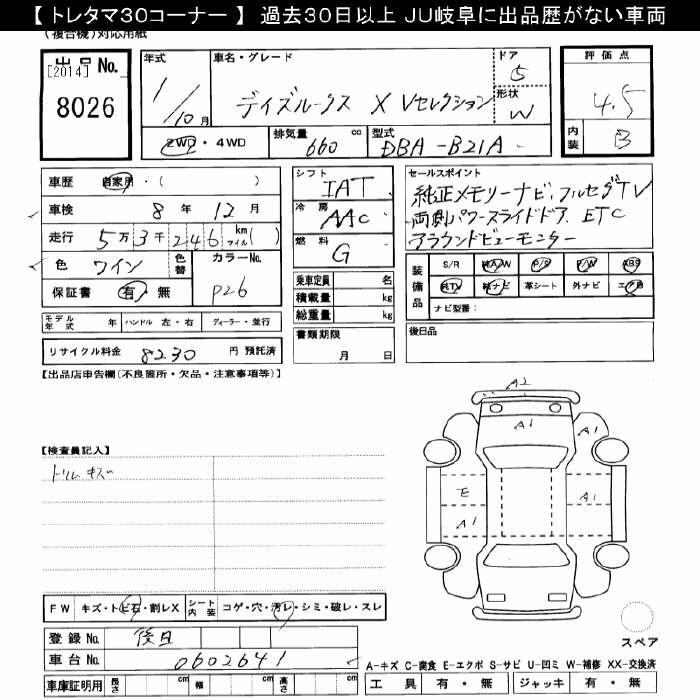 【 トレタマ30コーナー 】 過去30日以上 JU岐阜に出品歴がない車両
(複合機)対応用紙
出品 No.
[2014]
8026
年式
1/10月
車名・グレード
デイズルークス X Vセレクション
ドア
5
形状
W
評価点
4.5
内装
B
2WD・4WD
排気量
660 cc
型式
DBA-B21A
車歴 自家用・( )
車検 8年 12月
走行 5万3千246 km マイル( )
色 ワイン 色替 カラーNo.
P26
保証書 有・無
モデル年式 年 ハンドル 左・右 ディーラー・並行
リサイクル料金 8230 円 預託済
シフト
IAT
冷房
AAC
燃料
G
乗車定員 名
積載量 kg
総重量 kg
書類期限
月 日
セールスポイント
純正メモリーナビ、フルセグTV
両側パワースライドドア、ETC
アラウンドビューモニター
装備品
S/R 純A/W P/S P/W ABS
純TV 純ナビ 革シート 外ナビ エアB
ナビ型番:
後日品
【出品店申告欄(不良箇所・欠品・注意事項等)】
【検査員記入】
トリムキズ
A2
A1
A1
E
A1
A1
A1
スペア
FW キズ・トビ石・割レX シート内装 コゲ・穴・汚レ・シミ・破レ・スレ
登録 No. 後日
車台 No. 0602641
車庫証明用 長さ cm 幅 cm 高さ cm
A-キズ C-腐食 E-エクボ S-サビ U-凹ミ W-補修 XX-交換済
工具 有・無 ジャッキ 有・無